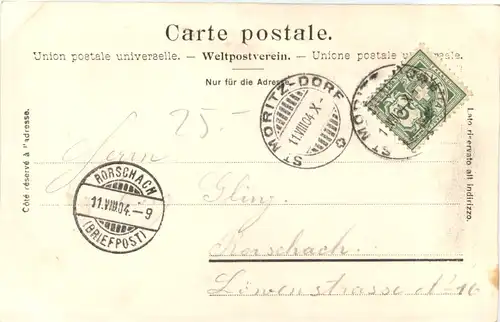 Carte postale.
Union postale universelle. — Weltpostverein. — Unione postale universale.
Nur für die Adresse
25.—
ST. MORITZ-DORF
11.VIII.04.X-
ST. MORITZ-DORF
Côté réservé à l'adresse.
Lato riservato all indirizzo.
Herrn
Gling
RORSCHACH
11.VIII.04.-9
(BRIEFPOST)
Rorschach
Löwenstrasse No 16